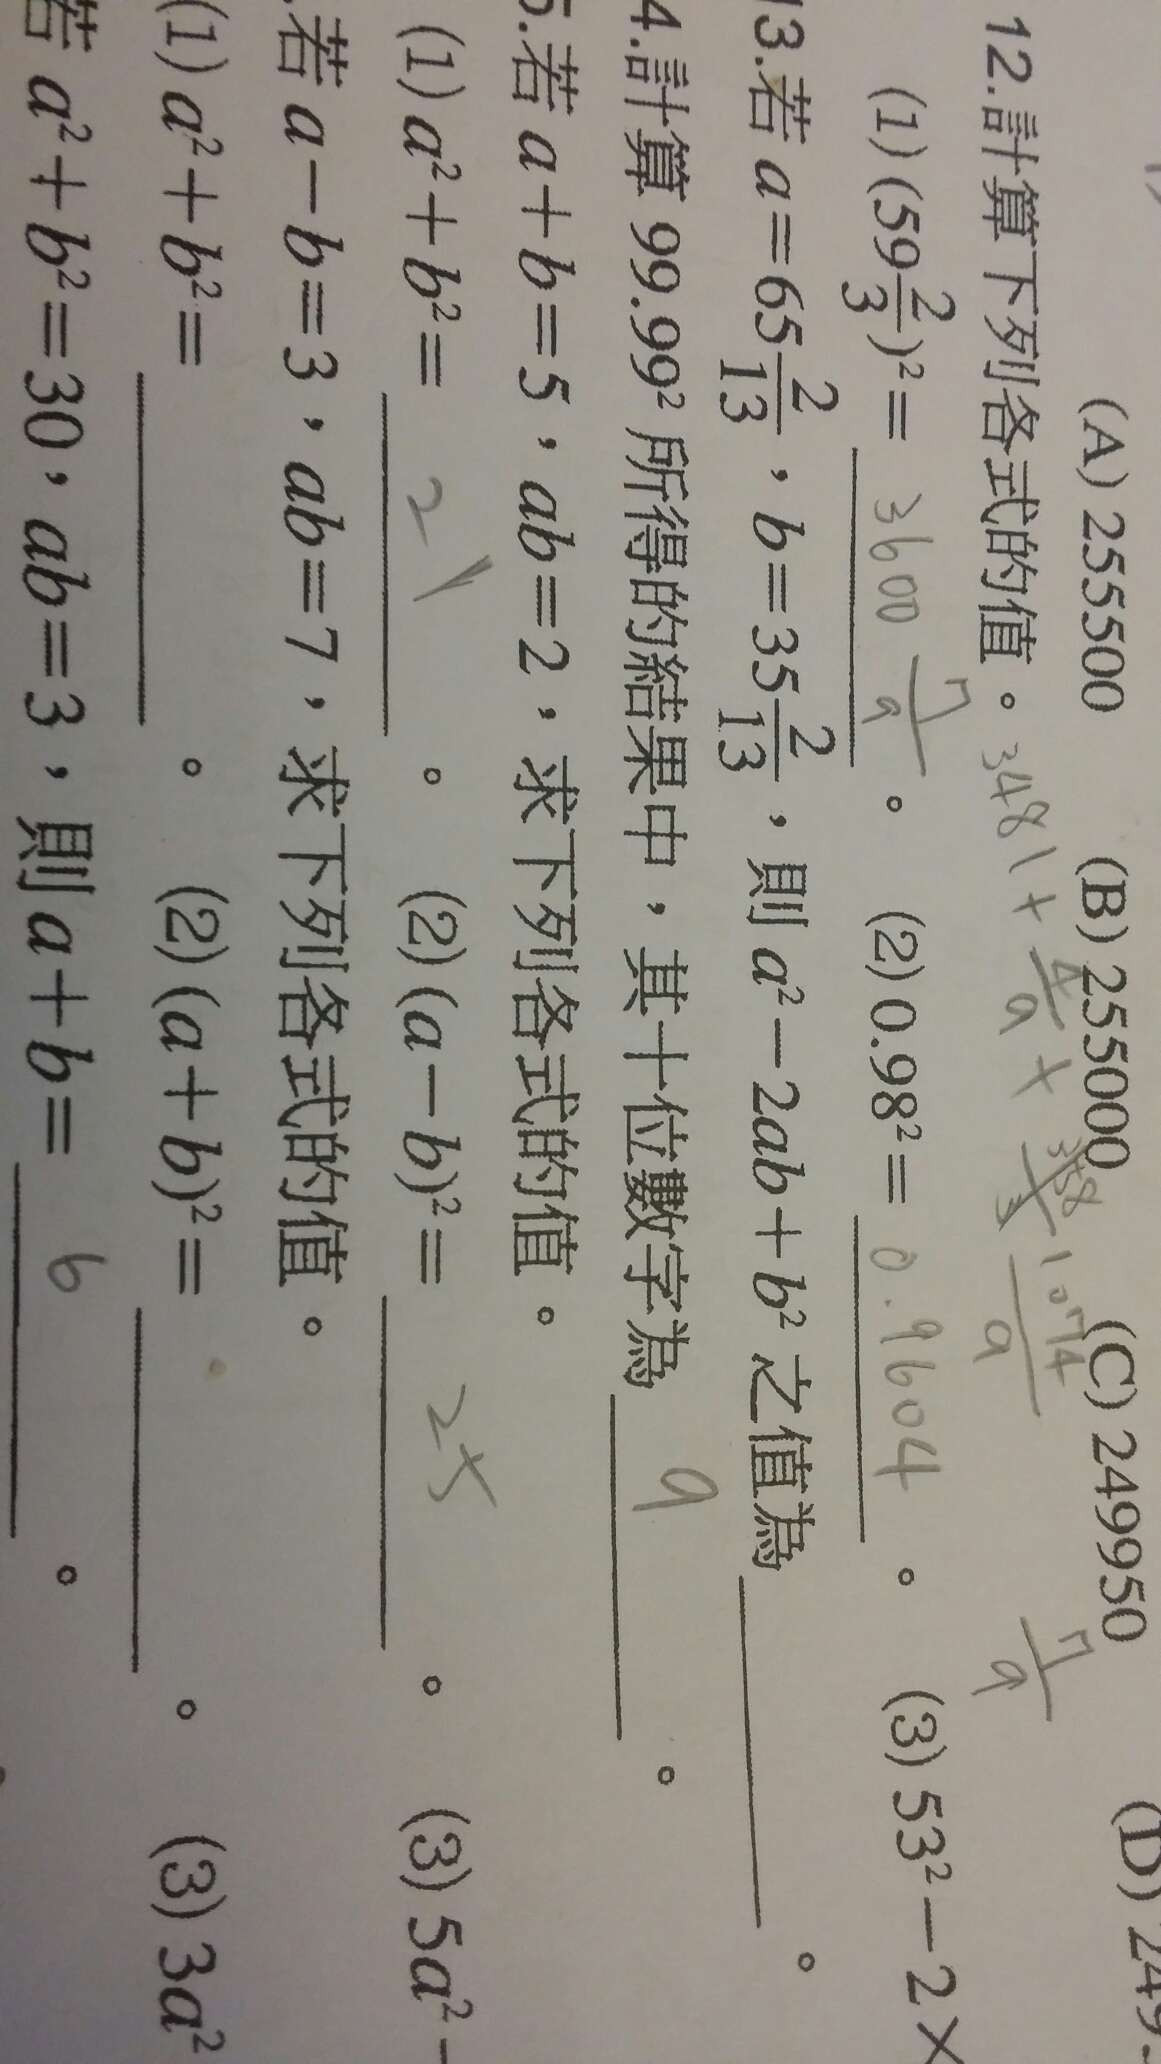 (A) 255500 (B) 255000 (C) 249950 (D) 249
12.計算下列各式的值。 3481 + 4/9 + 1074/9 7/9
(1) (59 2/3)² = 3600 7/9 。 (2) 0.98² = 0.9604 。 (3) 53² − 2 ×
13.若 a = 65 2/13 , b = 35 2/13 , 則 a² − 2ab + b² 之值為 。
4.計算 99.99² 所得的結果中,其十位數字為 9 。
5.若 a + b = 5 , ab = 2 , 求下列各式的值。
(1) a² + b² = 21 。 (2) (a − b)² = 25 。 (3) 5a² −
.若 a − b = 3 , ab = 7 , 求下列各式的值。
(1) a² + b² = 。 (2) (a + b)² = 。 (3) 3a²
若 a² + b² = 30 , ab = 3 , 則 a + b = 6 。